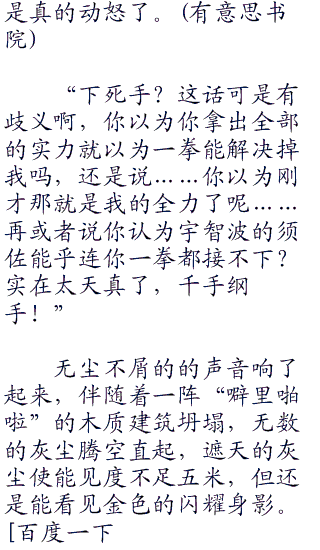 是真的动怒了。(有意思书
院)
“下死手?这话可是有
歧义啊,你以为你拿出全部
的实力就以为一拳能解决掉
我吗,还是说……你以为刚
才那就是我的全力了呢……
再或者说你认为宇智波的须
佐能乎连你一拳都接不下?
实在太天真了,千手纲
手!”
无尘不屑的的声音响了
起来,伴随着一阵“噼里啪
啦”的木质建筑坍塌,无数
的灰尘腾空直起,遮天的灰
尘使能见度不足五米,但还
是能看见金色的闪耀身影。
[百度一下